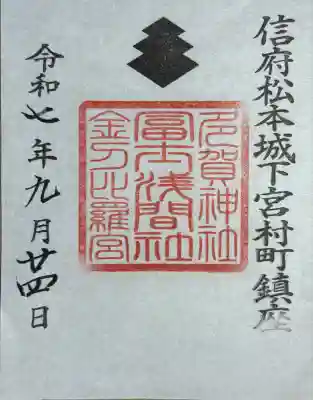 信府松本城下宮村町鎮座
多賀神社
冨士浅間社
金刀比羅宮
令和七年九月廿四日